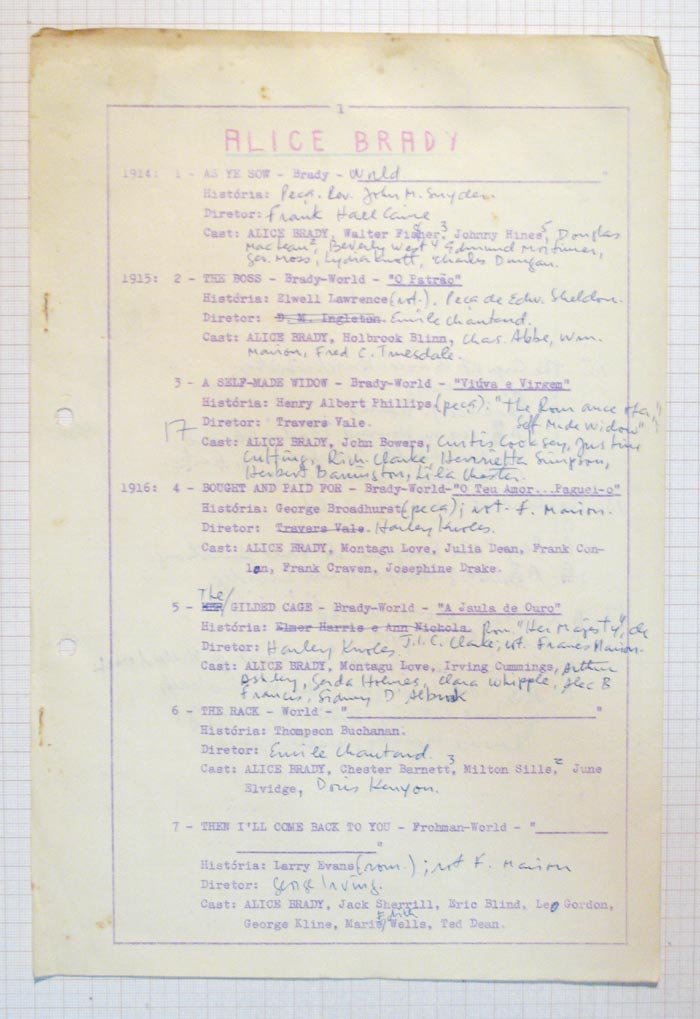 1
ALICE BRADY
1914: 1 - AS YE SOW - Brady - World "
História: Peça. Rev. John M. Snyder.
Diretor: Frank Hall Caine
Cast: ALICE BRADY, Walter Fisher, 3 Johnny Hines, 5 Douglas
MacLean 2, Beverly West 4 Edmund Mortimer,
Geo. Moss, Lydia Knott, Charles Dungan.
1915: 2 - THE BOSS - Brady-World - "O Patrão"
História: Elwell Lawrence (rot.). Peça de Edw. Sheldon.
Diretor: B. M. Ingleton. Emile Chautard.
Cast: ALICE BRADY, Holbrook Blinn, Chas. Abbe, Wm.
Marion, Fred C. Truesdale.
3 - A SELF-MADE WIDOW - Brady-World - "Viúva e Virgem"
História: Henry Albert Phillips (peça): "The Romance of a
Self Made Widow"
17 Diretor: Travers Vale.
Cast: ALICE BRADY, John Bowers, Curtis Cooksey, Justine
Cutting, Rich. Clarke, Henrietta Simpson,
Herbert Barrington, Lila Chester.
1916: 4 - BOUGHT AND PAID FOR - Brady-World-"O Teu Amor...Paguei-o"
História: George Broadhurst (peça); rot. F. Marion.
Diretor: Travers Vale. Harley Knoles.
Cast: ALICE BRADY, Montagu Love, Julia Dean, Frank Con-
lan, Frank Craven, Josephine Drake.
5 - The GILDED CAGE - Brady-World - "A Jaula de Ouro"
História: Elmer Harris e Ann Nichols. Rom. "Her Majesty", de
Diretor: Harley Knoles J.I.C. Clarke; rot. Frances Marion.
Cast: ALICE BRADY, Montagu Love, Irving Cummings, Arthur
Ashley, Gerda Holmes, Clara Whipple, Alec B
Francis, Sidney D'Albrook
6 - THE RACK - World - " "
História: Thompson Buchanan.
Diretor: Emile Chautard.
Cast: ALICE BRADY, Chester Barnett, 3 Milton Sills, 2 June
Elvidge, Doris Kenyon.
7 - THEN I'LL COME BACK TO YOU - Frohman-World - "
"
História: Larry Evans (rom.); rot F. Marion
Diretor: George Irving.
Cast: ALICE BRADY, Jack Sherrill, Eric Blind, Leo Gordon,
George Kline, Marie Edith Wells, Ted Dean.